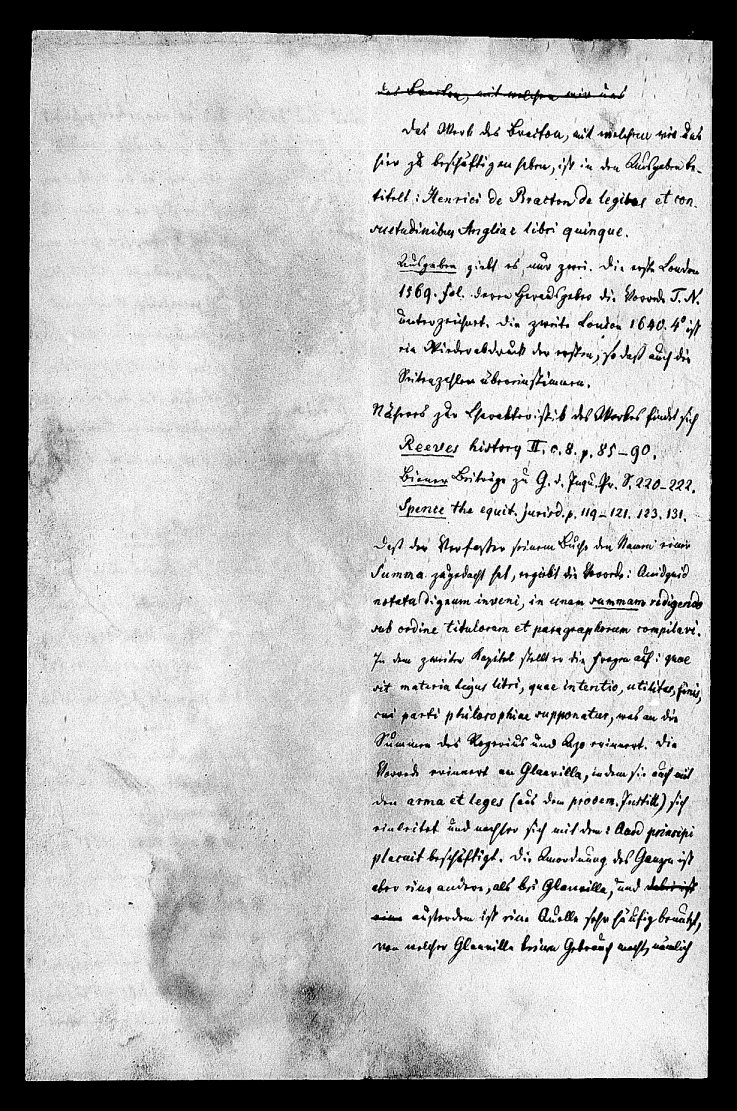 des Bracton, mit welchem wir uns
Das Werk des Bracton, mit welchem wir uns
hier zu beschäftigen haben, ist in den Ausgaben be-
titelt: Henrici de Bracton de legibus et con-
suetudinibus Angliae libri quinque.
Ausgaben giebt es nur zwei. Die erste London
1569. fol. deren Herausgeber die Vorrede T. N.
unterzeichnet. Die zweite London 1640. 4° ist
ein Wiederabdruck der ersten, so daß auch die
Seitenzahlen übereinstimmen.
Näheres zur Charakteristik des Werkes findet sich
Reeves history II. c. 8. p. 85–90.
Biener Beiträge zu G. d. Inqu. Pr. S. 220–222.
Spence the equit. jurisd. p. 119–121. 123. 131.
Daß der Verfasser seinem Buche den Namen einer
Summa zugedacht hat, ergiebt die Vorrede: Aliquid
notatu dignum inveni, in unam summam redigendo
sub ordine titulorum et paragraphorum compilavi.
In dem zweiten Kapitel stellt er die Fragen auf: quae
sit materia hujus libri, quae intentio, utilitas, finis,
cui parti philosophiae supponatur, was an die
Summen des Rogerius und Azo erinnert. Die
Vorrede erinnert an Glanvilla, indem sie auch mit
den arma et leges (aus dem prooem. Institt.) sich
einleitet und nachher sich mit dem: Quod principi
placuit beschäftigt. Die Anordnung des Ganzen ist
aber eine andere, als bei Glanvilla, und dabei ist
eine außerdem ist eine Quelle sehr häufig benutzt,
von welcher Glanvilla keinen Gebrauch macht, nämlich